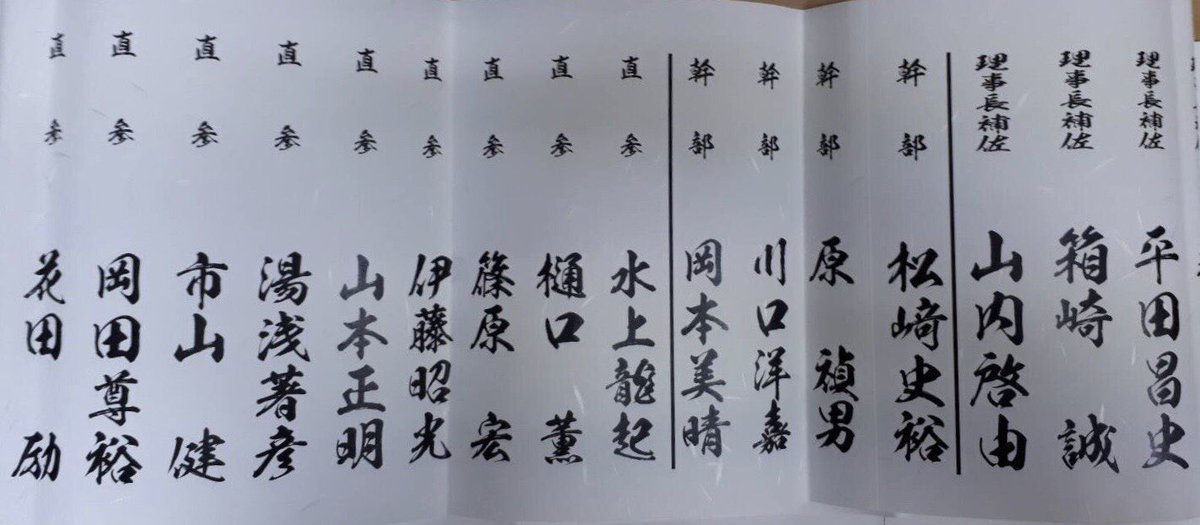 理事長補佐 平田昌史
理事長補佐 箱崎 誠
理事長補佐 山内啓由
幹部 松﨑史裕
幹部 原 禎男
幹部 川口洋嘉
幹部 岡本美晴
直参 水上龍起
直参 樋口 薫
直参 篠原 宏
直参 伊藤昭光
直参 山本正明
直参 湯浅著彦
直参 市山 健
直参 岡田尊裕
直参 花田 励